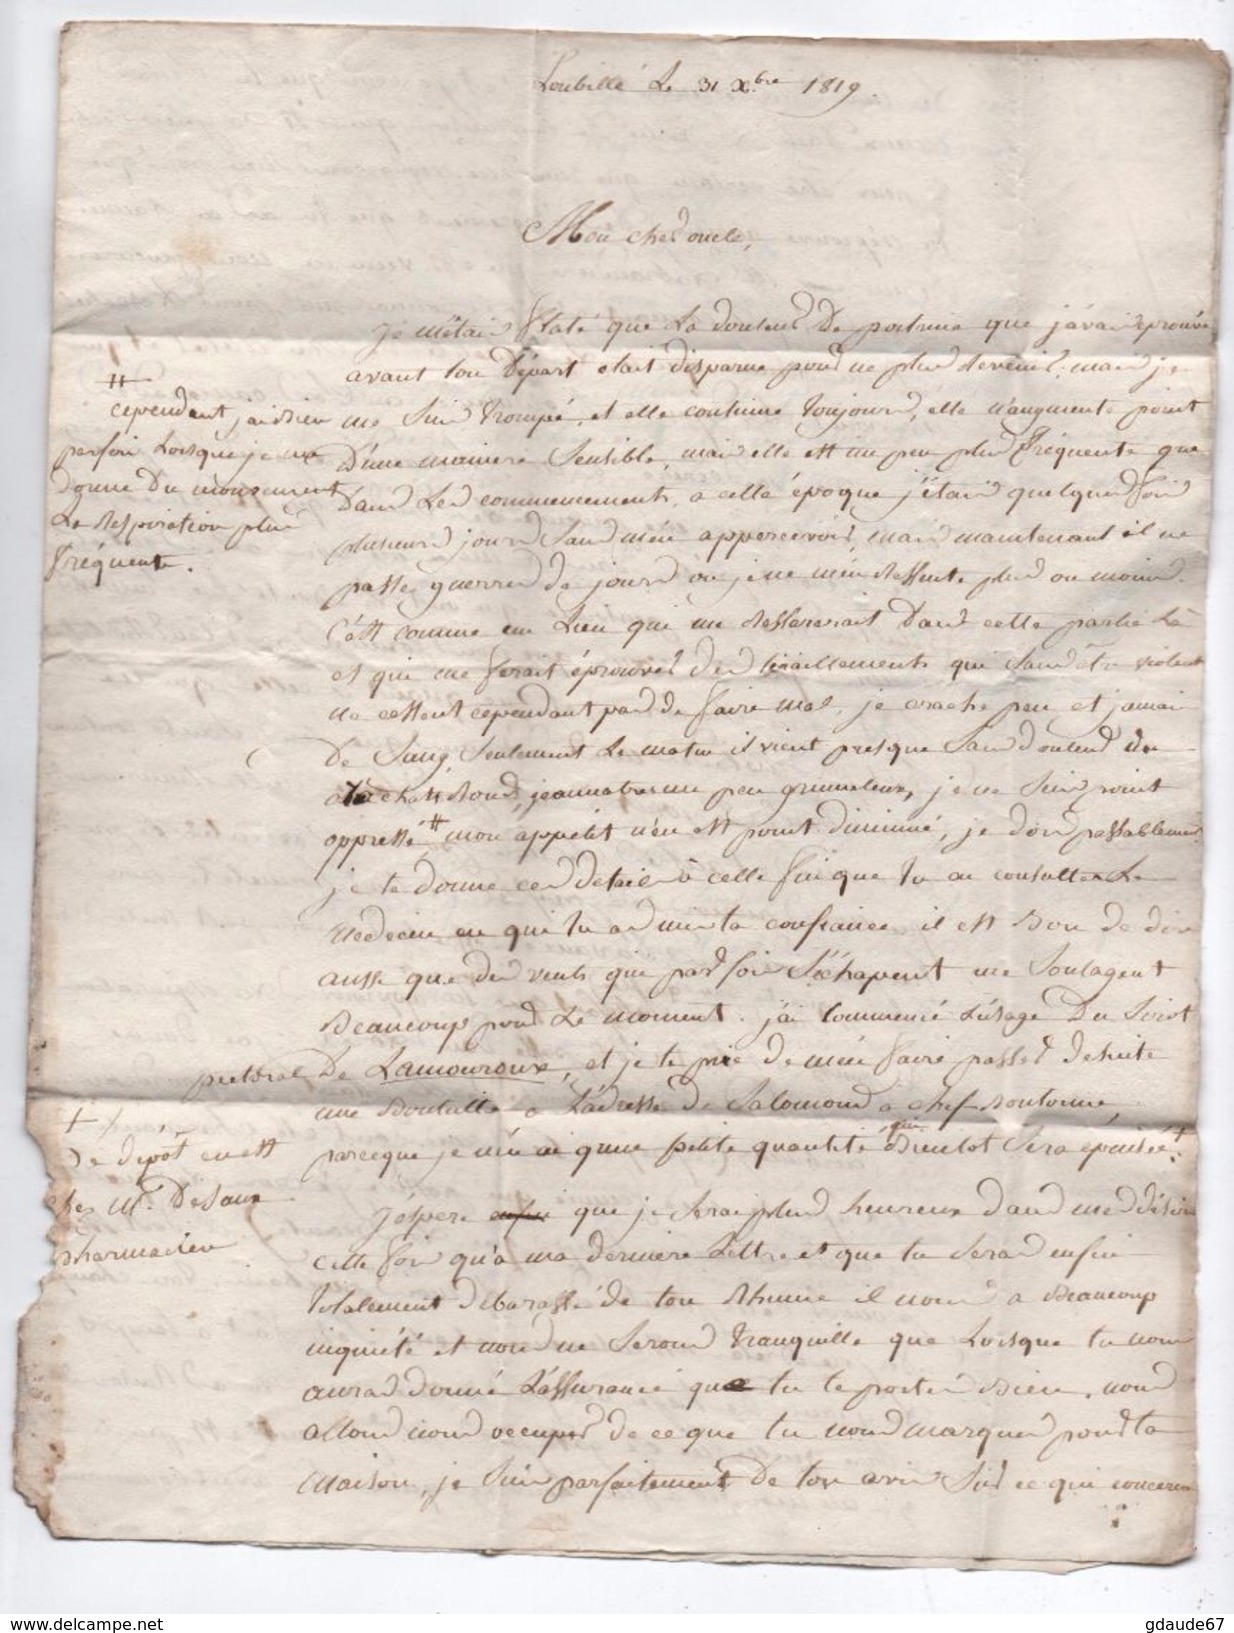 Loubillé Le 31 Xbre 1819.
Mon cher oncle,
Je m'étais flaté que La douleur De poitrine que j'avais éprouvé
avant ton Départ était disparue pour ne plus Revenir, mais je
me Suis trompé, et elle continue toujours, elle n'augmente point
D'une maniere Sensible, mais elle est un peu plus fréquente que
Dans Les commencements, a cette époque j'étais quelques fois
plusieurs jours Sans m'en appercevoir, mais maintenant il ne
passe guerres de jours où je ne m'en Ressente plus ou moins.
C'est comme un Lien qui me Resserrerait Dans cette partie Là
et qui me ferait éprouver des tiraillements qui Sans être violent
ne cessent cependant pas de faire mal, je crache peu et jamais
De Sang, Seulement Le matin il vient presque Sans douleur des
crachats Ronds, jeaunatres un peu grumeleux, je ne Suis point
oppressé # mon appétit n'en est point diminué, je dors passablement
je te donne ces détails à celle fin que tu ai consulter Le
Medecin en qui tu as mis ta confiance il est Bon de dire
aussi que des vents qui par fois S'échapent me Soulagent
Beaucoup pour Le moment. j'ai commencé L'usage Du Sirot
pectoral De Lamouroux, et je te prie de m'en faire passer de suite
une Bouteille a L'adresse de Salomond a chef Boutonne,
parceque je n'en ai q'une petite quantité qui Bientot Sera épuisée +
J'éspere enfin que je Serai plus heureux dans mes désirs
cette fois qu'à ma derniere Lettre et que tu Seras enfin
totalement débarassé de ton Rhume il nous a Beaucoup
inquiété et nous ne Serons tranquille que Lorsque tu nous
auras donné L'assurance que tu te portes Bien. nous
allons nous occuper de ce que tu nous marques pour ta
maison, je Suis parfaitement De ton avis Sur ce qui concerne
#
cependant j'ai Bien
parfois Lorsque je me
donne Du mouvement
La Respiration plus
fréquente.
+
Le dépôt en est
chez Mr. DeSaux
pharmacien
gdaude67
www.delcampe.net